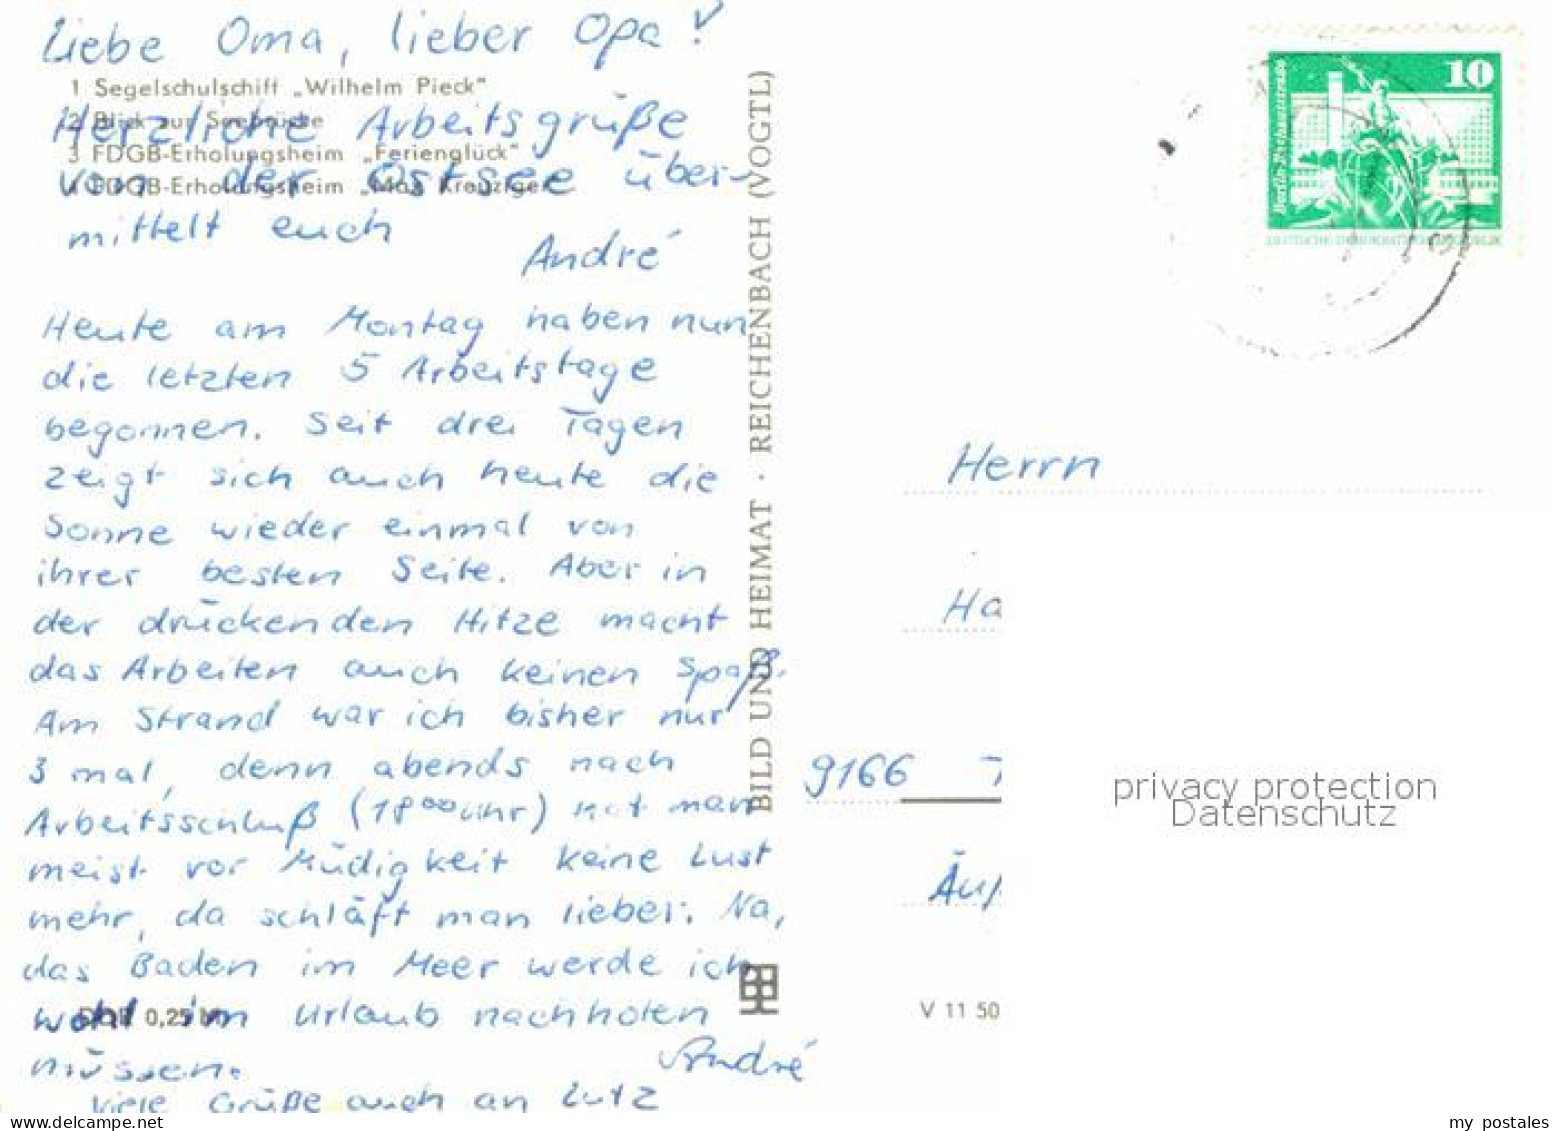 Liebe Oma, lieber Opa!
1 Segelschulschiff „Wilhelm Pieck"
2 Blick zur Seebrücke
Herzliche Arbeitsgrüße
3 FDGB-Erholungsheim „Ferienglück"
von der Ostsee über-
4 FDGB-Erholungsheim „Max Kreuziger"
mittelt euch
André
Heute am Montag haben nun
die letzten 5 Arbeitstage
begonnen. Seit drei Tagen
zeigt sich auch heute die
Sonne wieder einmal von
ihrer besten Seite. Aber in
der drückenden Hitze macht
das Arbeiten auch keinen Spaß.
Am Strand war ich bisher nur
3 mal, denn abends nach
Arbeitsschluß (18⁰⁰ Uhr) hat man
meist vor Müdigkeit keine Lust
mehr, da schläft man lieber. Na,
das Baden im Meer werde ich
wohl im Urlaub nachholen
DDR 0,25 M
müssen.
André
Viele Grüße auch an Lutz
BILD UND HEIMAT · REICHENBACH (VOGTL)
10
Berlin-Rathausstraße
DEUTSCHE DEMOKRATISCHE REPUBLIK
Herrn
Ha
9166 T
Äuß
V 11 50
privacy protection
Datenschutz
my postales